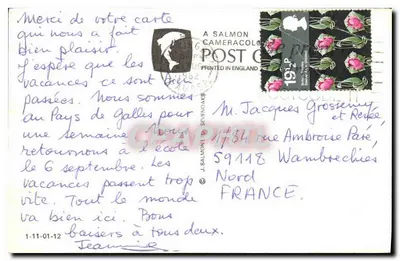 Merci de votre carte
qui nous a fait
bien plaisir.
J'espère que les
vacances ce sont bien
passées. Nous sommes
au Pays de Galles pour
une semaine. Nous
retournons à l'école
le 6 septembre. Les
vacances passent trop
vite. Tout le monde
va bien ici. Bons
baisers à tous deux.
Jeannie
1-11-01-12
A SALMON
CAMERACOLO
POST C
PRINTED IN ENGLAND
J. SALMON LTD. SEVENOAKS ©
19½P
M. Jacques
et Renée,
175A rue Ambroise Paré,
59118 Wambrechies
Nord
FRANCE.